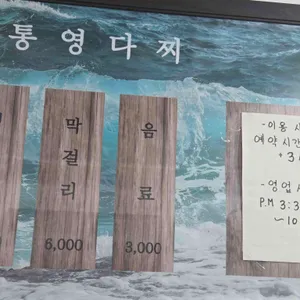 통영다찌
막걸리
6,000
음료
3,000
-이용 시
예약시간
+3
-영업 시
P.M 3:3
~10